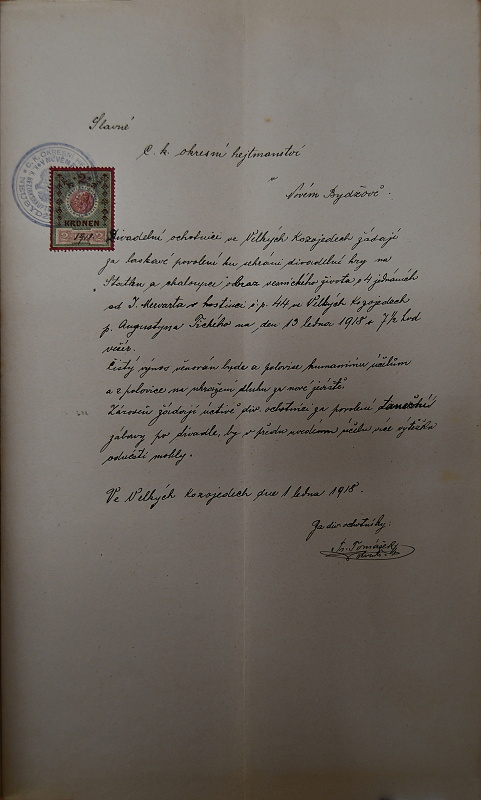 Slavné
C. k. okresní hejtmanství
v
Novém Bydžově.
2
KRONEN
1918
Divadelní ochotníci ve Velkých Kozojedech žádají
za laskavé povolení ku sehrání divadelní hry na
"Statku a chaloupce" obraz vesnického života o 4 jednáních
od J. Mervarta v hostinci č. p. 44 ve Velkých Kozojedech
p. Augustyna Tichého na den 13 ledna 1918 v 7½ hod
večer.
Čistý výnos věnován bude a polovice humanním účelům
a z polovice na uhražení dluhu za nové jeviště.
Zároveň žádají uctivě div. ochotníci za povolení taneční
zábavy po divadle, by v předu uvedenému účelu více výtěžku
odvésti mohly.
Ve Velkých Kozojedech dne 1 ledna 1918.
Za div. ochotníky:
Tomášek